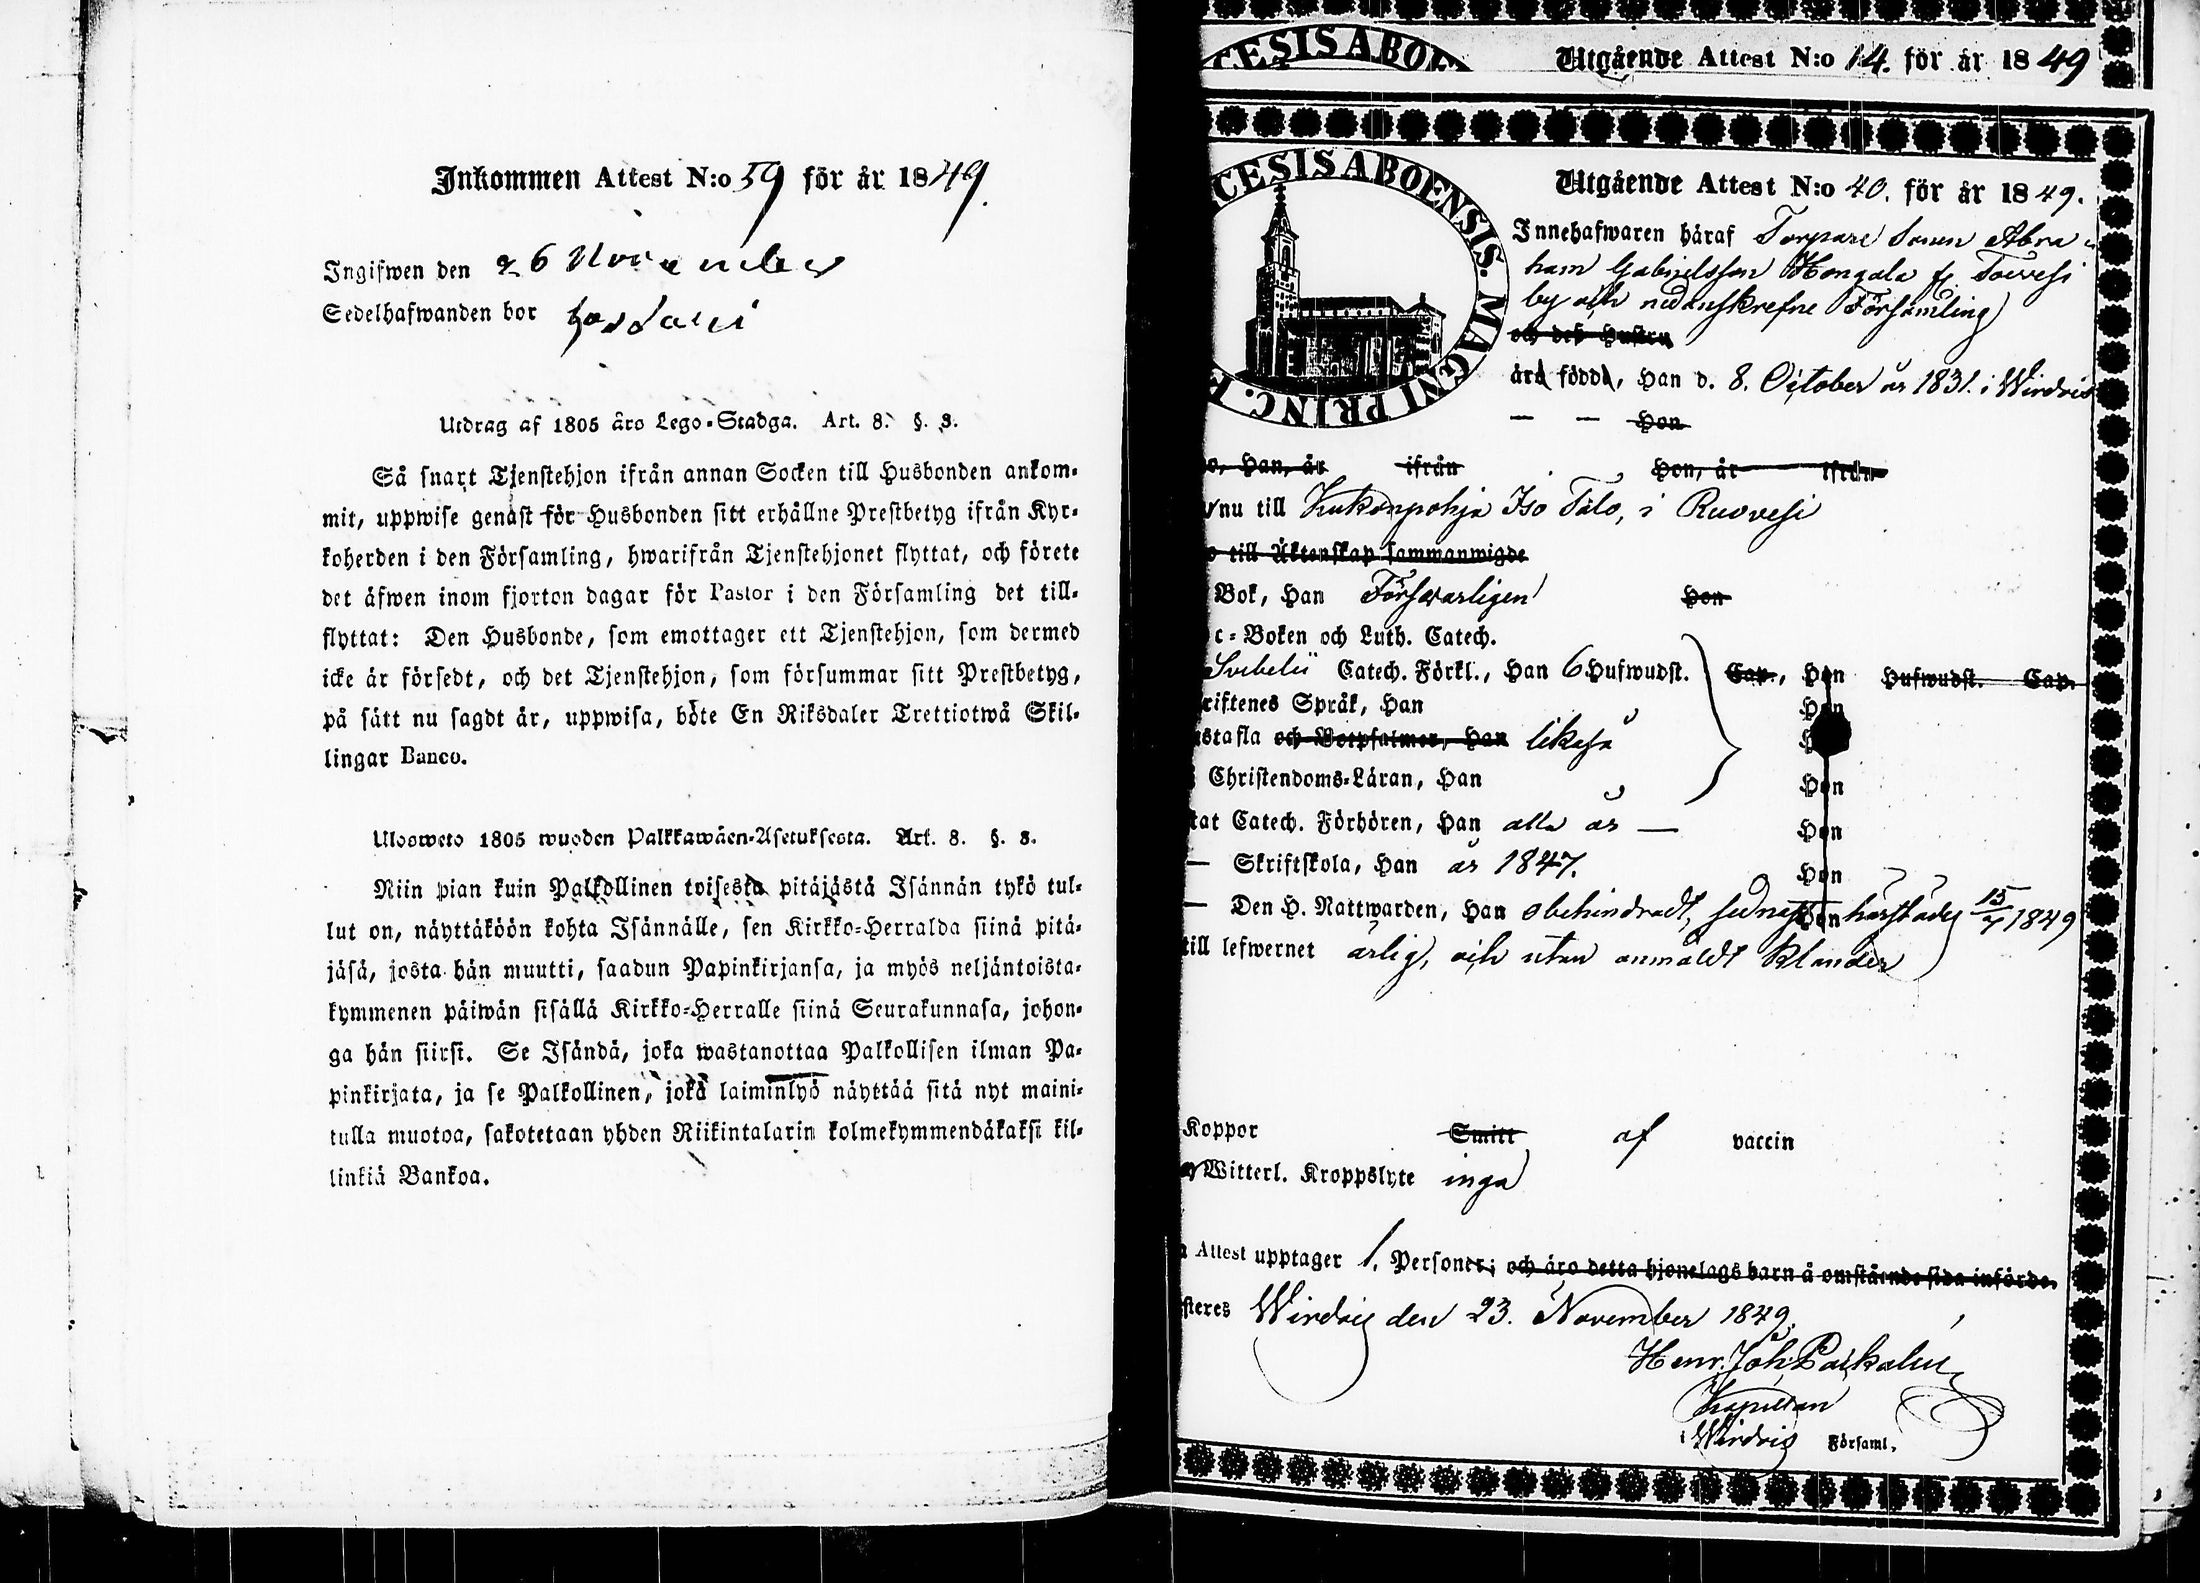 Inkommen Attest N:o 59 för år 1849.
Ingifwen den 26 November
Sedelhafwanden bor
Utdrag af 1805 års Lego-Stadga. Art. 8. §. 3.
Så snart Tjenstehjon ifrån annan Socken till Husbonden ankom-
mit, uppwise genast för Husbonden sitt erhållne Prestbetyg ifrån Kyr-
koherden i den Församling, hwarifrån Tjenstehjonet flyttat, och förete
det äfwen inom fjorton dagar för Pastor i den Församling det till-
flyttat: Den Husbonde, som emottager ett Tjenstehjon, som dermed
icke är försedt, och det Tjenstehjon, som försummar sitt Prestbetyg,
på sätt nu sagdt är, uppwisa, böte En Riksdaler Trettiotwå Skil-
lingar Banco.
Ulosweto 1805 wuoden Palkkawäen-Asetuksesta. Art. 8. §. 3.
Niin pian kuin Palkollinen toisesta pitäjästä Isännän tykö tul-
lut on, näyttäköön kohta Isännälle, sen Kirkko-Herralda siinä pitä-
jäsä, josta hän muutti, saadun Papinkirjansa, ja myös neljäntoista-
kymmenen päiwän sisällä Kirkko-Herralle siinä Seurakunnasa, johon-
ga hän siirsi. Se Isändä, joka wastanottaa Palkollisen ilman Pa-
pinkirjata, ja se Palkollinen, joka laiminlyö näyttää sitä nyt maini-
tulla muotoa, sakotetaan yhden Riikintalarin kolmekymmendäkaksi kil-
linkiä Bankoa.
CESIS ABOE
Utgående Attest N:o 14. för år 1849
CESIS ABOENSIS. MAGNI PRINC. F
Utgående Attest N:o 40. för år 1849.
Innehafwaren häraf Torpare Sonen Abra-
ham Gabrielsson Hongala fr. Toivesi
by och nedanskrefne Församling
och deß Hustru
äro födde, Han d. 8. October år 1831. i Wirdois
— — Hon
o, Han, år ifrån Hon, år ifrån
nu till Kukonpohja Iso Talo, i Ruovesi
o till Äktenskap sammanwigde
Bok, Han Förswarligen Hon
c-Boken och Luth. Catech.
Svebelii Catech. Förkl., Han 6 Hufwudst. Cap., Hon Hufwudst. Cap.
riftenes Språk, Han Hon
stafla och Botpsalmer, Han likaså Hon
Christendoms-Läran, Han Hon
tat Catech. Förhören, Han alla år — Hon
— Skriftskola, Han år 1847. Hon
— Den H. Nattwarden, Han obehindradt, sednast Hon härstädes 15/7 1849
till lefwernet ärlig, och utan anmäldt klander
Koppor Smitt af vaccin
Witterl. Kroppslyte inga
Attest upptager 1. Personer; och äro detta hjonelags barn å omstående sida införde.
steres Wirdois den 23. November 1849.
Henr. Joh.
Kapellan
i Wirdois Församl.